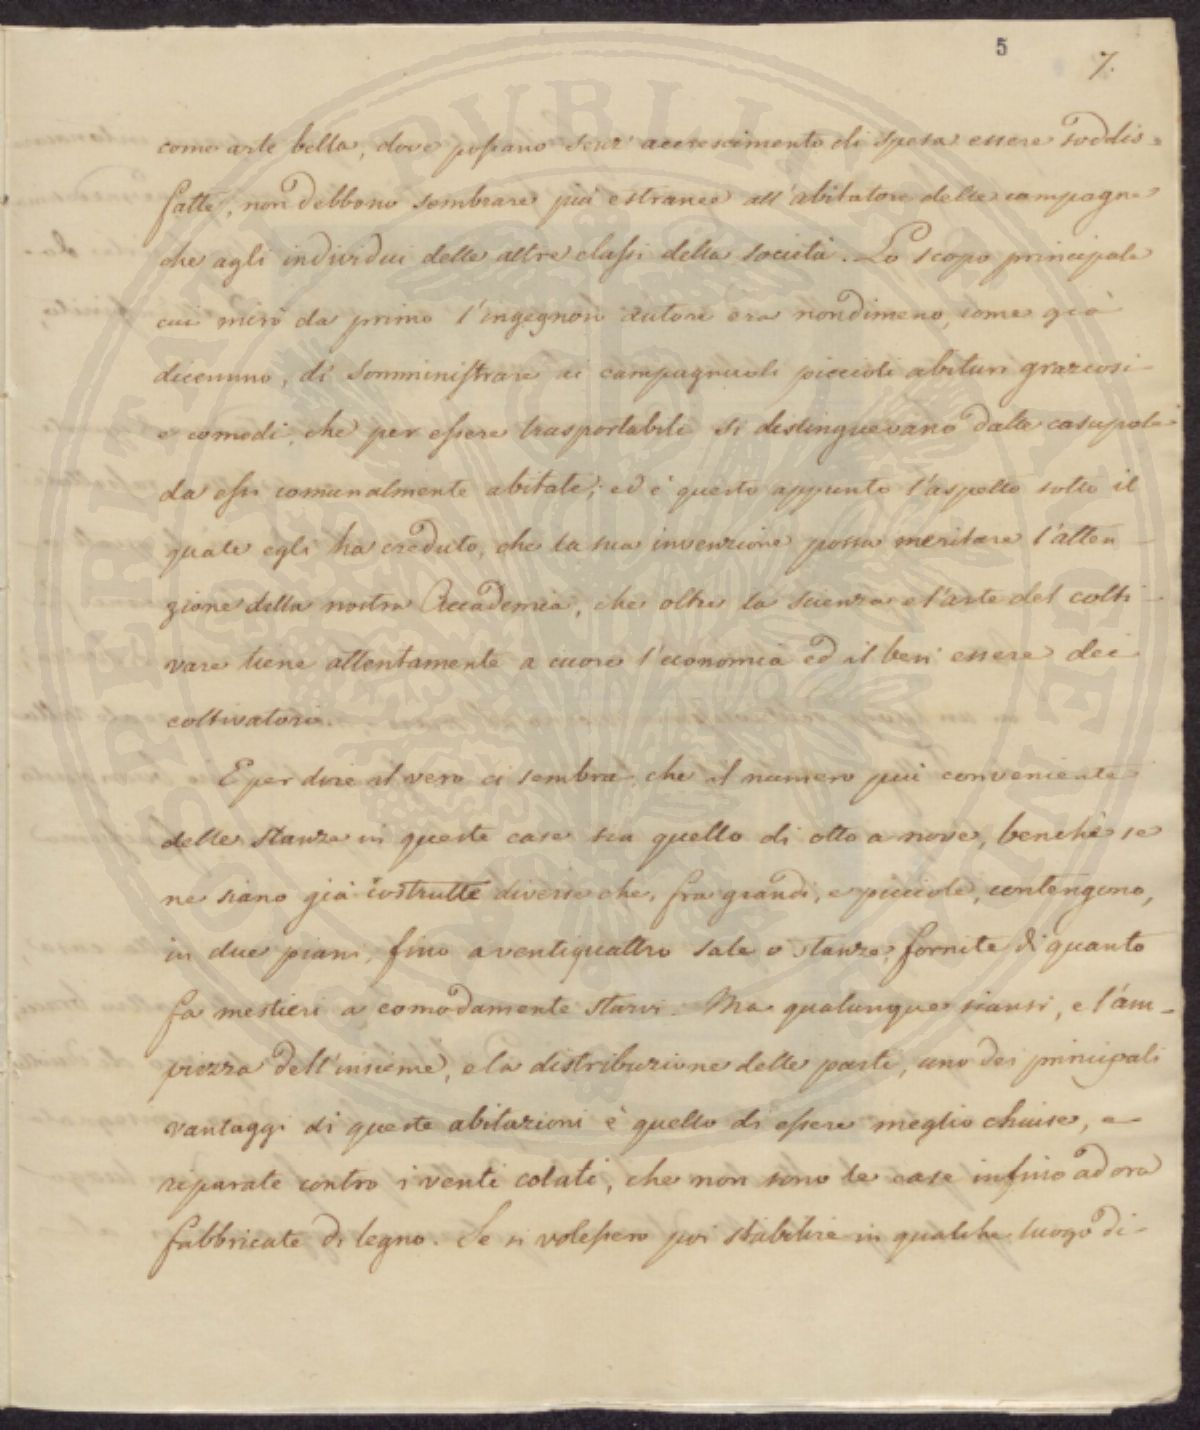 5
7.
come arte bella, dove possano senz' accrescimento di spesa essere soddis=
fatte, non debbono sembrare più estranee all'abitatore delle campagne
che agli individui delle altre classi della società. Lo scopo principale
cui mirò da primo l'ingegnoso autore era nondimeno, come già
dicemmo, di somministrare ai campagnuoli piccioli abituri graziosi
e comodi, che per essere trasportabili si distinguevano dalle casupole
da essi comunalmente abitate; ed è questo appunto l'aspetto sotto il
quale egli ha creduto, che la sua invenzione possa meritare l'atten-
zione della nostra Accademia, che oltre la scienza e l'arte del colti-
vare tiene attentamente a cuore l'economia ed il ben essere dei
coltivatori.
E per dire il vero ci sembra, che il numero più conveniente
delle stanze in queste case sia quello di otto a nove, benchè se
ne siano già costrutte diverse che, fra grandi, e picciole, contengono,
in due piani, fino a ventiquattro sale o stanze, fornite di quanto
fa mestieri a comodamente starvi. Ma qualunque siansi, e l'am-
piezza dell'insieme, e la distribuzione delle parti, uno dei principali
vantaggi di queste abitazioni è quello di essere meglio chiuse, e
riparate contro i venti colati, che non sono le case infino ad ora
fabbricate di legno. Se si volessero poi stabilire in qualche luogo di-